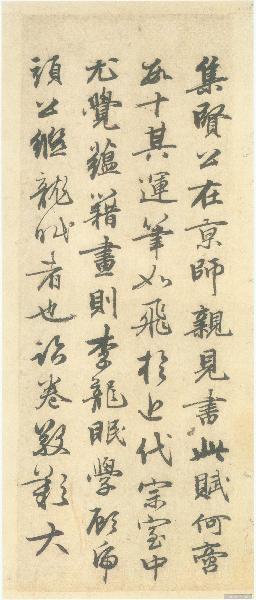 集賢公在京師親見書此賦何啻
數十其運筆如飛於近代宗室中
尤覺蘊藉畫則李龍眠學顧虎
頭公繼龍眠者也治卷敬對大